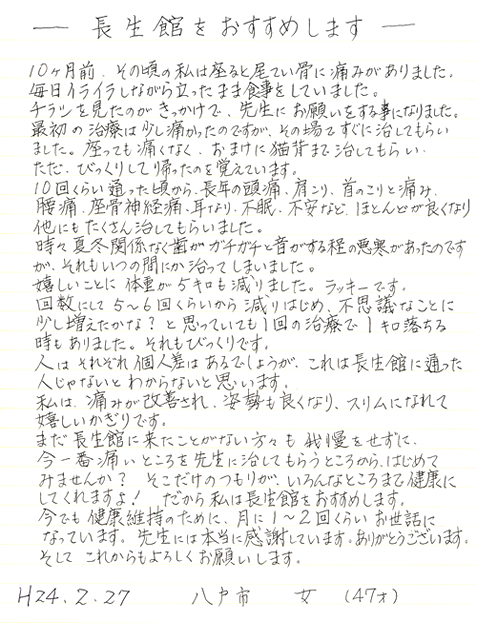 ― 長生館をおすすめします ―
10ヶ月前、その頃の私は座ると尾てい骨に痛みがありました。
毎日イライラしながら立ったまま食事をしていました。
チラシを見たのがきっかけで、先生にお願いをする事になりました。
最初の治療は少し痛かったのですが、その場ですぐに治してもらい
ました。座っても痛くなく、おまけに猫背まで治してもらい、
ただ、びっくりして帰ったのを覚えています。
10回くらい通った頃から、長年の頭痛、肩こり、首のこりと痛み、
腰痛、座骨神経痛、耳なり、不眠、不安など、ほとんどが良くなり
他にもたくさん治してもらいました。
時々夏冬関係なく歯がガチガチと音がする程の悪寒があったのです
が、それもいつの間にか治ってしまいました。
嬉しいことに体重が5キロも減りました。ラッキーです。
回数にして5～6回くらいから減りはじめ、不思議なことに
少し増えたかな？と思っていても1回の治療で1キロ落ちる
時もありました。それもびっくりです。
人はそれぞれ個人差はあるでしょうが、これは長生館に通った
人じゃないとわからないと思います。
私は、痛みが改善され、姿勢も良くなり、スリムになれて
嬉しいかぎりです。
まだ長生館に来たことがない方々も我慢をせずに、
今一番痛いところを先生に治してもらうところから、はじめて
みませんか？そこだけのつもりが、いろんなところまで健康に
してくれますよ！だから私は長生館をおすすめします。
今でも健康維持のために、月に1～2回くらいお世話に
なっています。先生には本当に感謝しています。ありがとうございます。
そしてこれからもよろしくお願いします。
H24.2.27 八戸市 女 (47才)